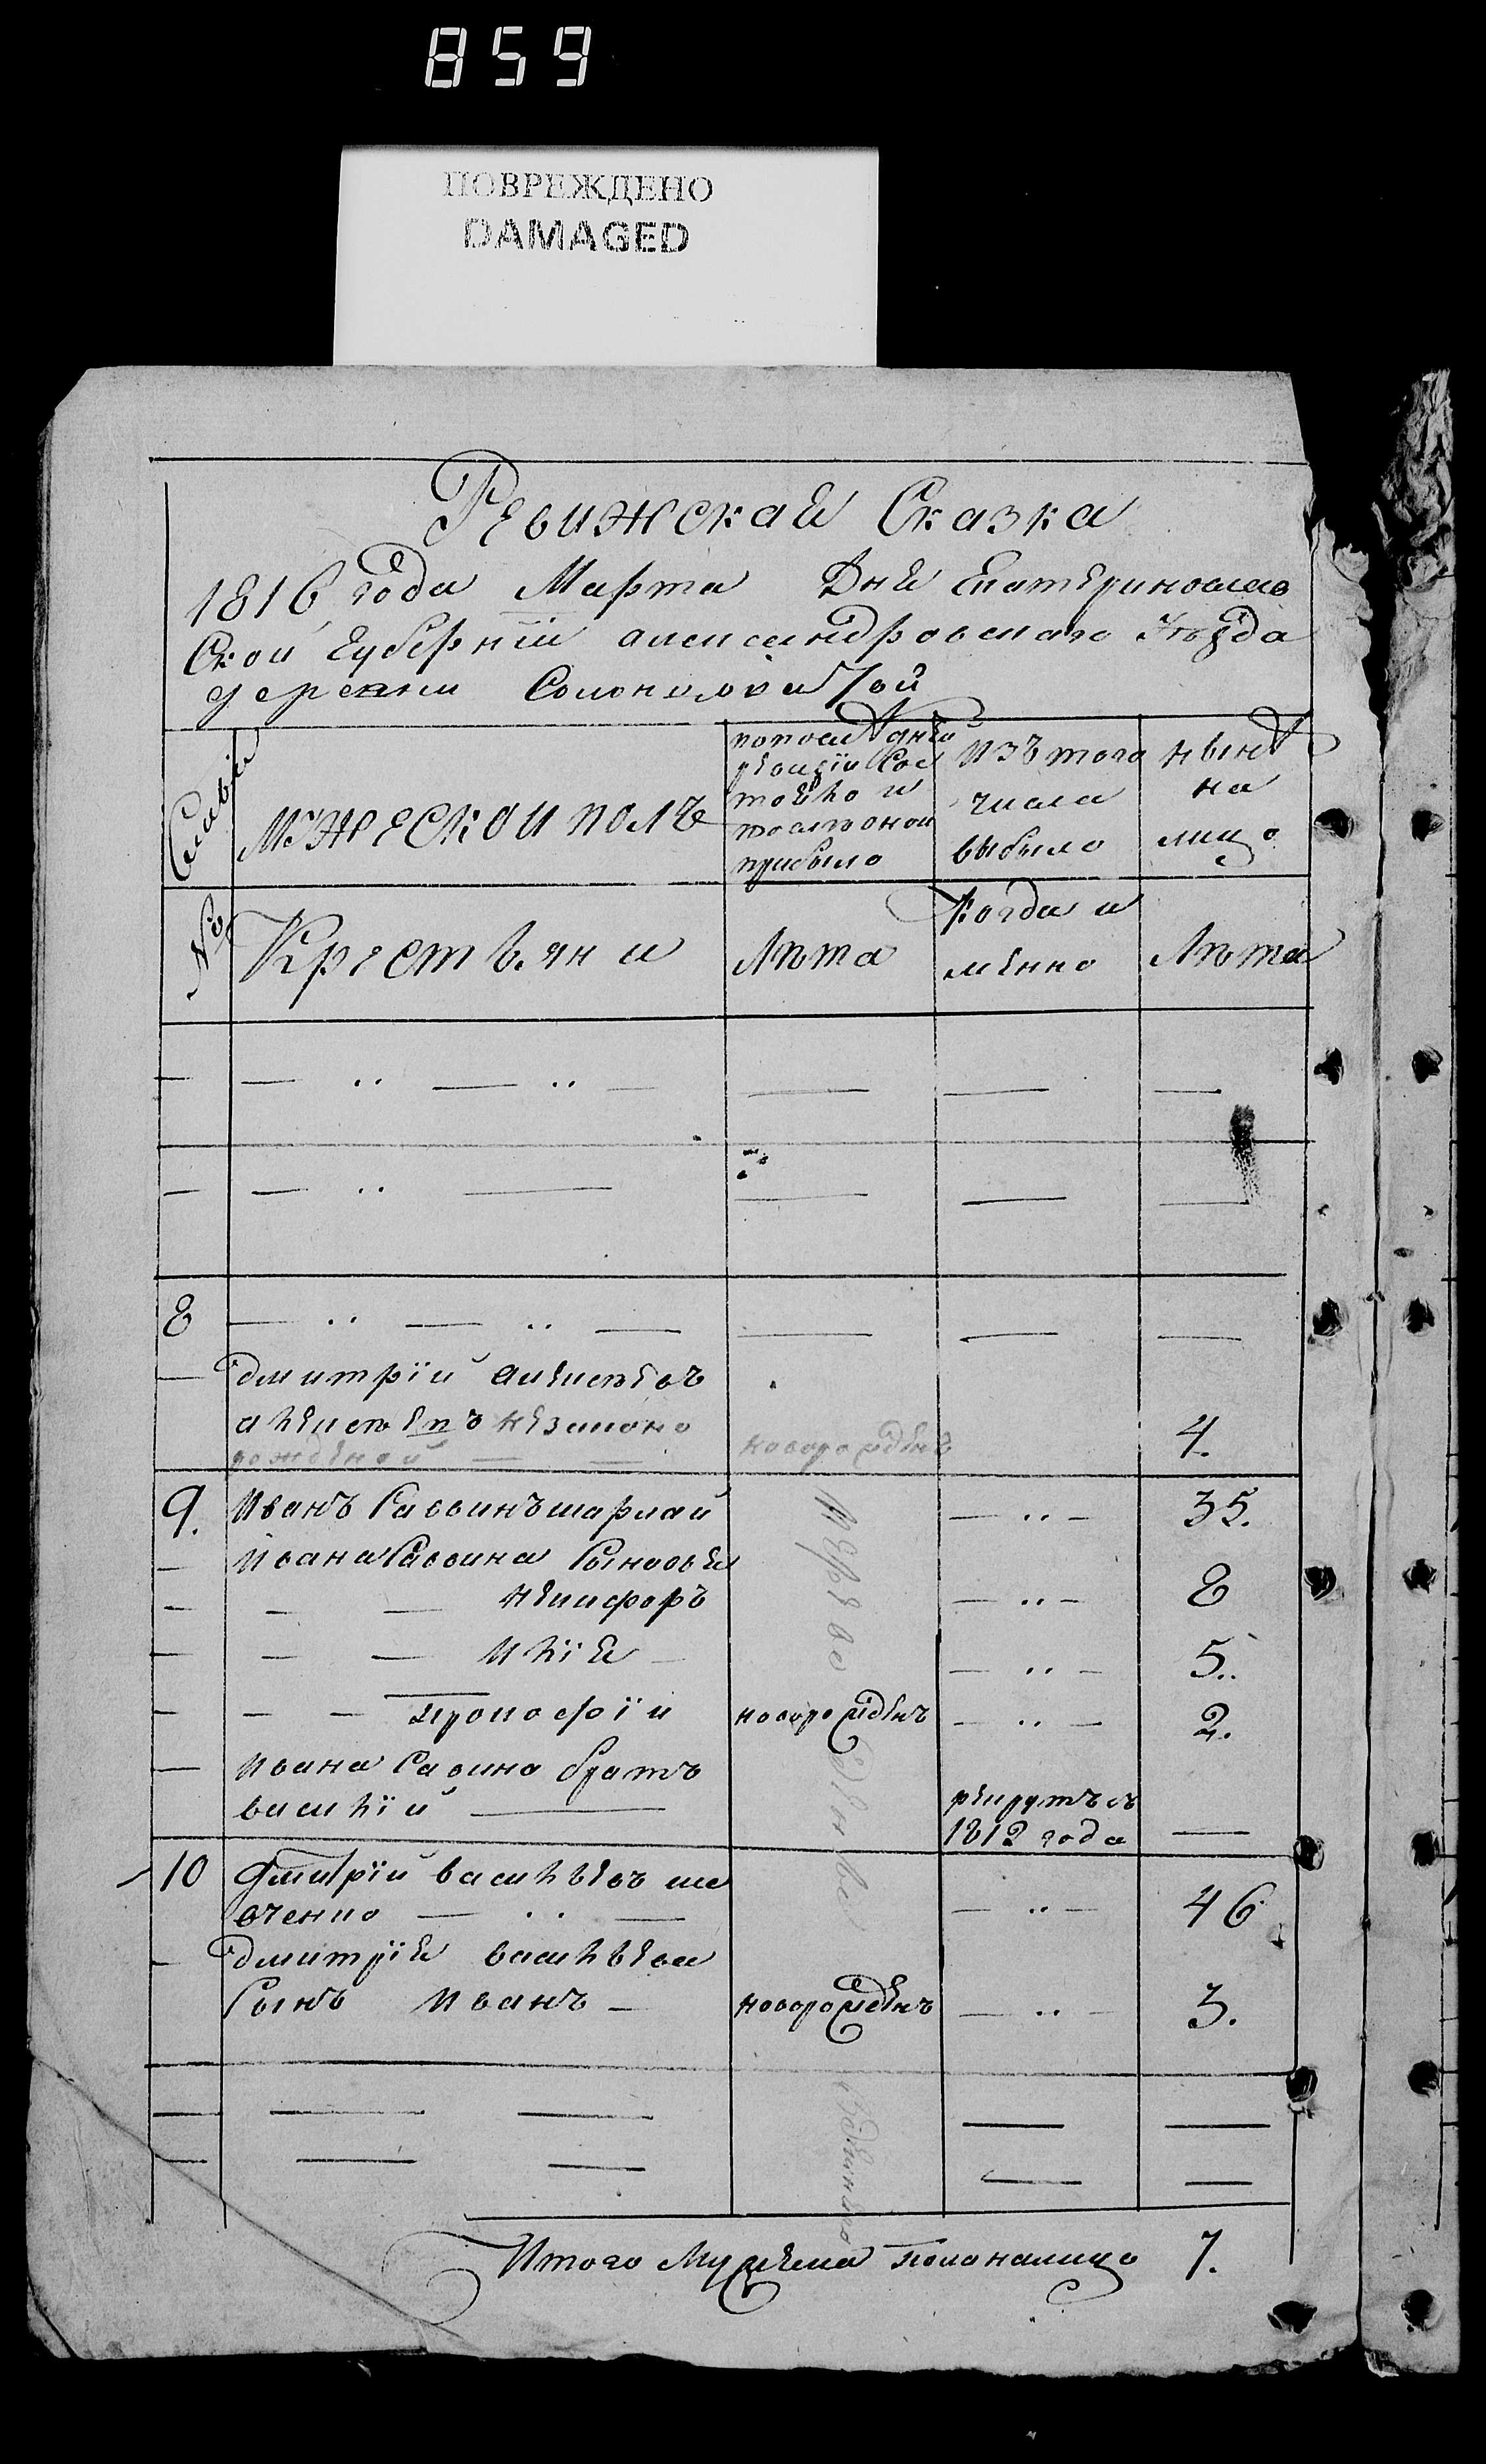 859
ПОВРЕЖДЕНО
DAMAGED
Ревижская Сказка
1816 года Марта Дня Екатеринослав
Ской Губерніи александровскаго Уѣзда
деревни Солоной
Семьи
мужеской полъ
попоследней
ревизіи Сос
тояло и
послѣ оной
прибыло
изъ того
числа
выбыло
нынѣ
на
лицо
№
Крестьяни
Лѣта
Когда и
мянно
Лѣта
8
Дмитрій алексеевъ
незаконо
рожденой
новорожденъ
4.
9.
Иванъ Савинъ шарлай
35.
Ивана Савина Сыновья
никифоръ
8
Илія
5.
прокофій
новорожденъ
2.
Ивана Савина братъ
василій
рекрутъ въ
1812 года
10
Дмитрій васильевъ ше
вченко
46
Дмитрія васильева
Сынъ Иванъ
новорожденъ
3.
Итого Мужеска пола налицо 7.